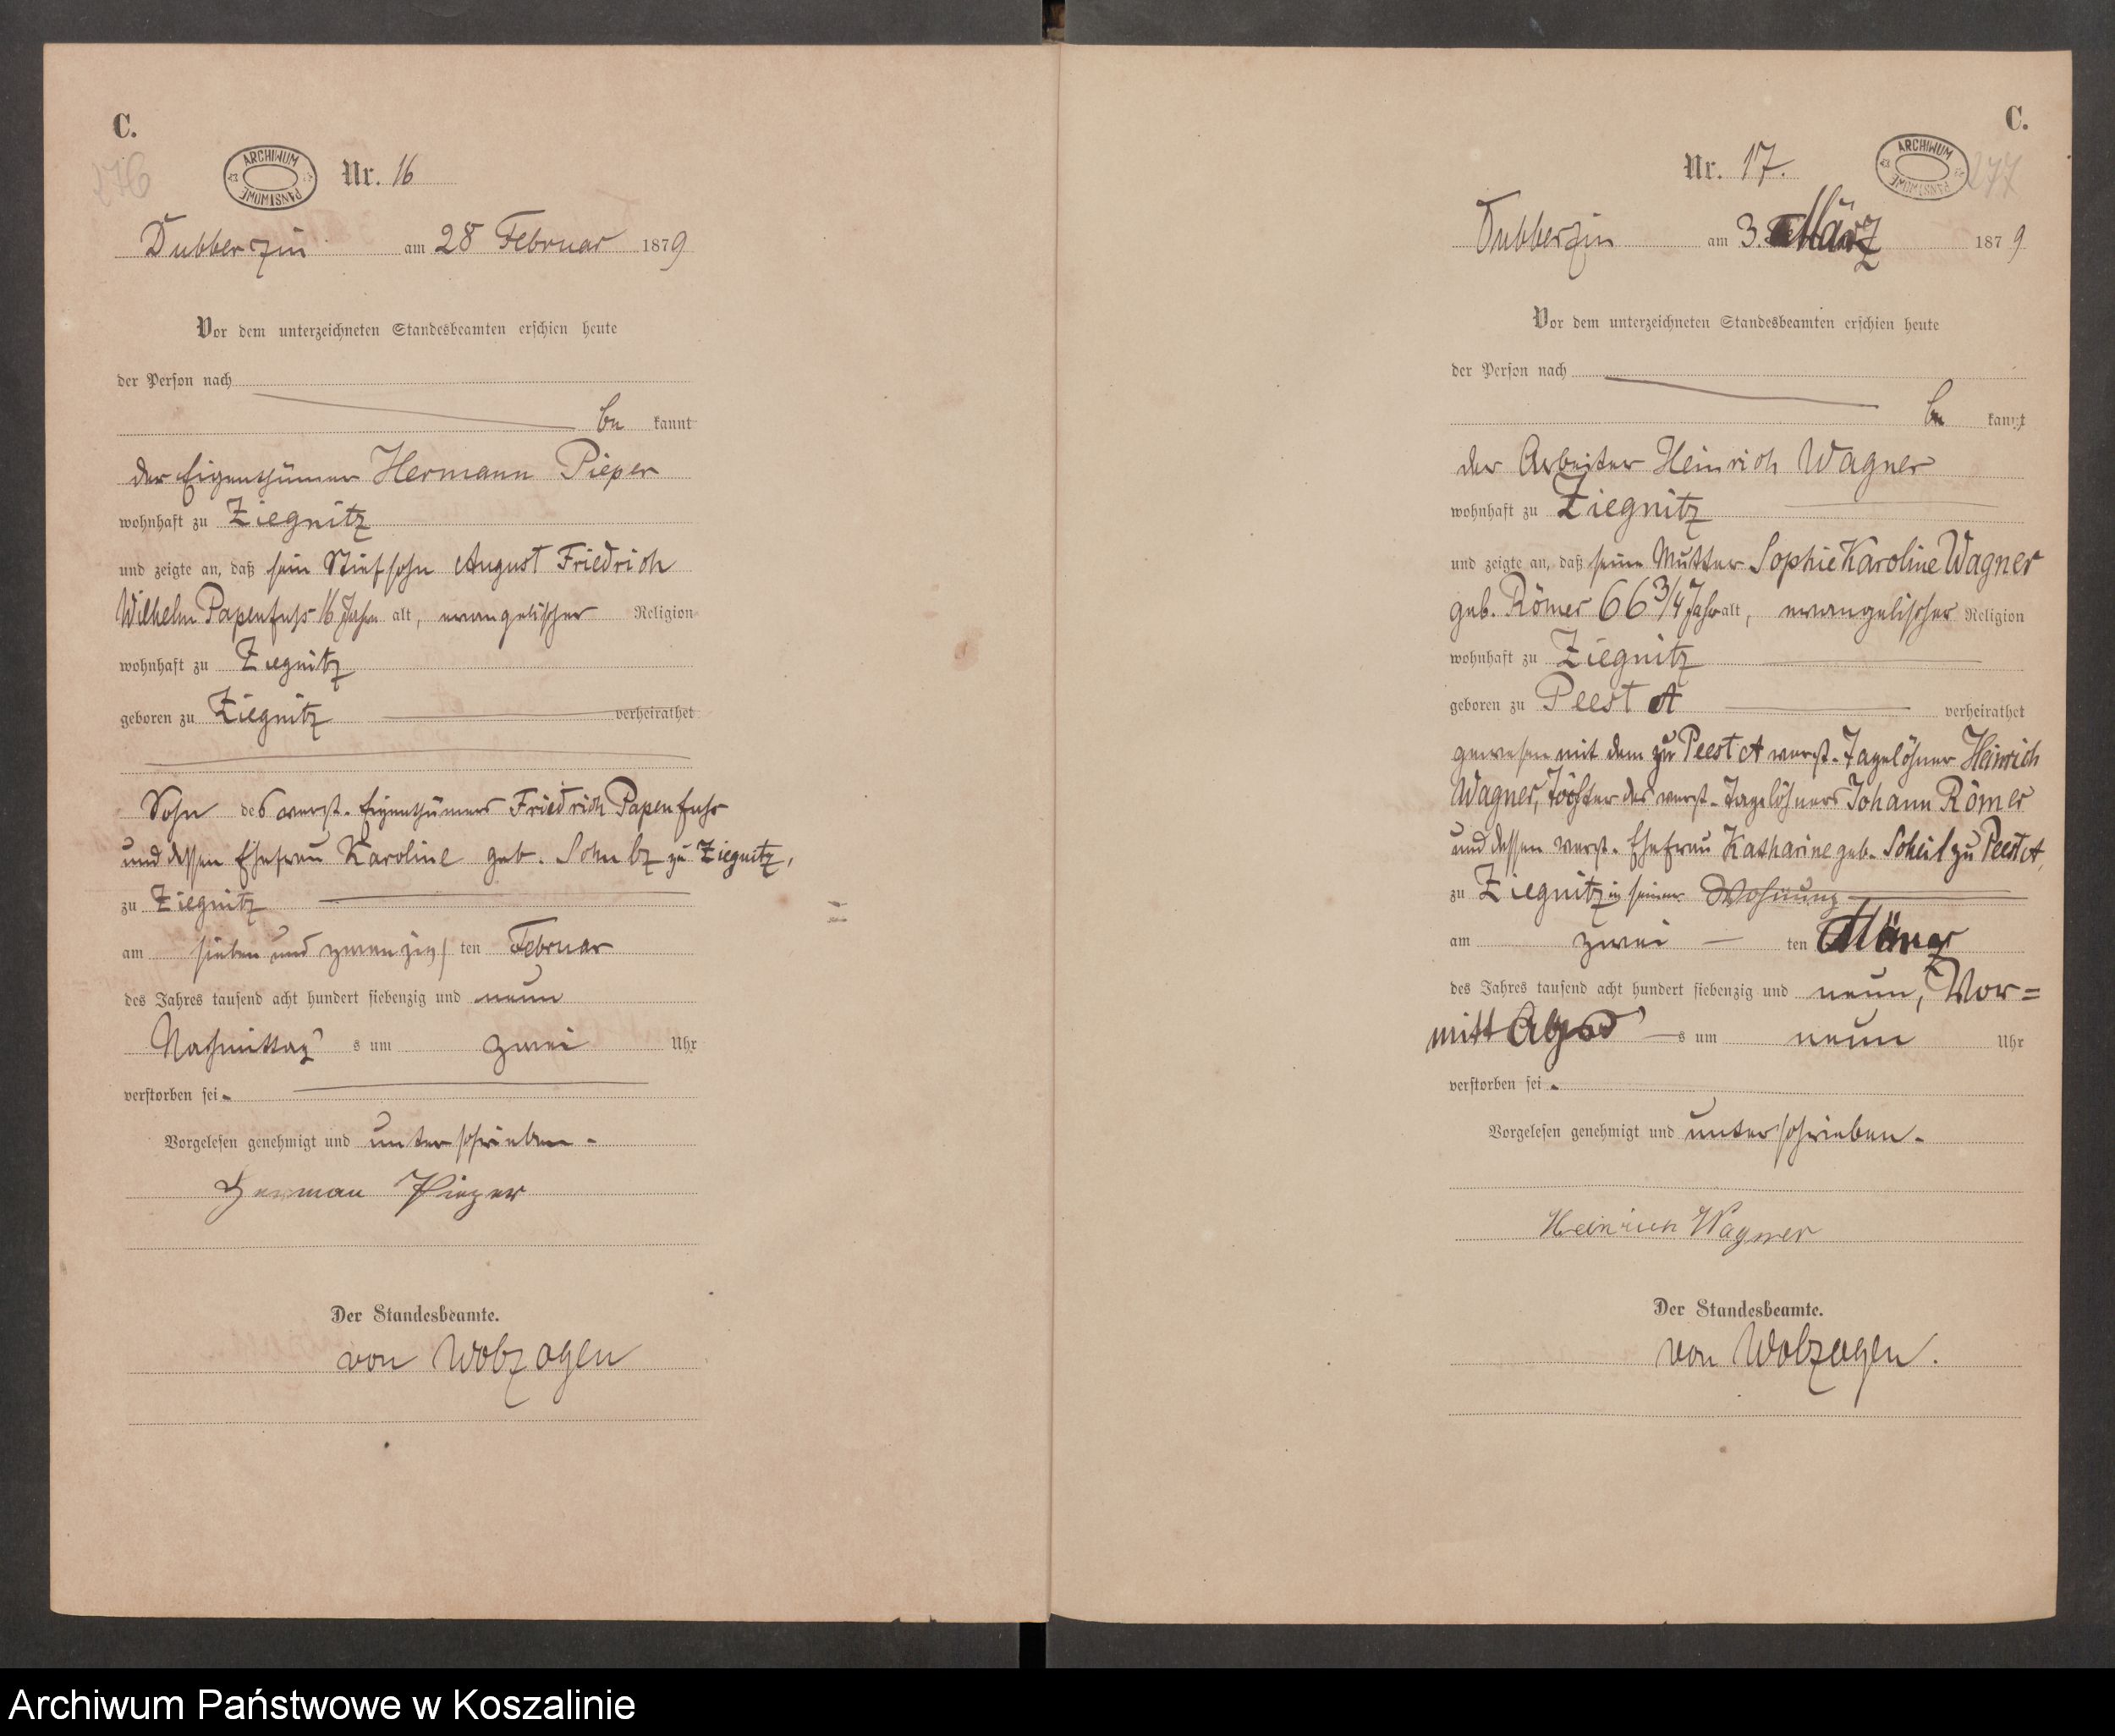 C.
276
ARCHIWUM PAŃSTWOWE
Nr. 16
Dubberzin am 28 Februar 1879
Vor dem unterzeichneten Standesbeamten erschien heute
der Person nach
be kannt
der Eigenthümer Hermann Pieper
wohnhaft zu Ziegnitz
und zeigte an, daß sein Stiefsohn August Friedrich
Wilhelm Papenfuhs 16 Jahre alt, evangelischer Religion
wohnhaft zu Ziegnitz
geboren zu Ziegnitz verheirathet
Sohn des verst. Eigenthümers Friedrich Papenfuhs
und dessen Ehefrau Karoline geb. zu Ziegnitz,
zu Ziegnitz
am sieben und zwanzigs ten Februar
des Jahres tausend acht hundert siebenzig und neun
Nachmittag s um zwei Uhr
verstorben sei.
Vorgelesen genehmigt und unterschrieben.
Herman Pieper
Der Standesbeamte.
von Wolzogen
C.
277
ARCHIWUM PAŃSTWOWE
Nr. 17.
Dubberzin am 3. März 1879
Vor dem unterzeichneten Standesbeamten erschien heute
der Person nach
be kannt
der Arbeiter Heinrich Wagner
wohnhaft zu Ziegnitz
und zeigte an, daß seine Mutter Sophie Karoline Wagner
geb. Römer 66 3/4 Jahr alt, evangelischer Religion
wohnhaft zu Ziegnitz
geboren zu Peest A verheirathet
gewesen mit dem zu Peest A verst. Tagelöhner Heinrich
Wagner, Tochter des verst. Tagelöhners Johann Römer
und dessen verst. Ehefrau Katharine geb. Scheil zu Peest A,
zu Ziegnitz in seiner Wohnung
am zwei ten März
des Jahres tausend acht hundert siebenzig und neun, Vor=
mittags um neun Uhr
verstorben sei.
Vorgelesen genehmigt und unterschrieben.
Heinrich Wagner
Der Standesbeamte.
von Wolzogen.
Archiwum Państwowe w Koszalinie